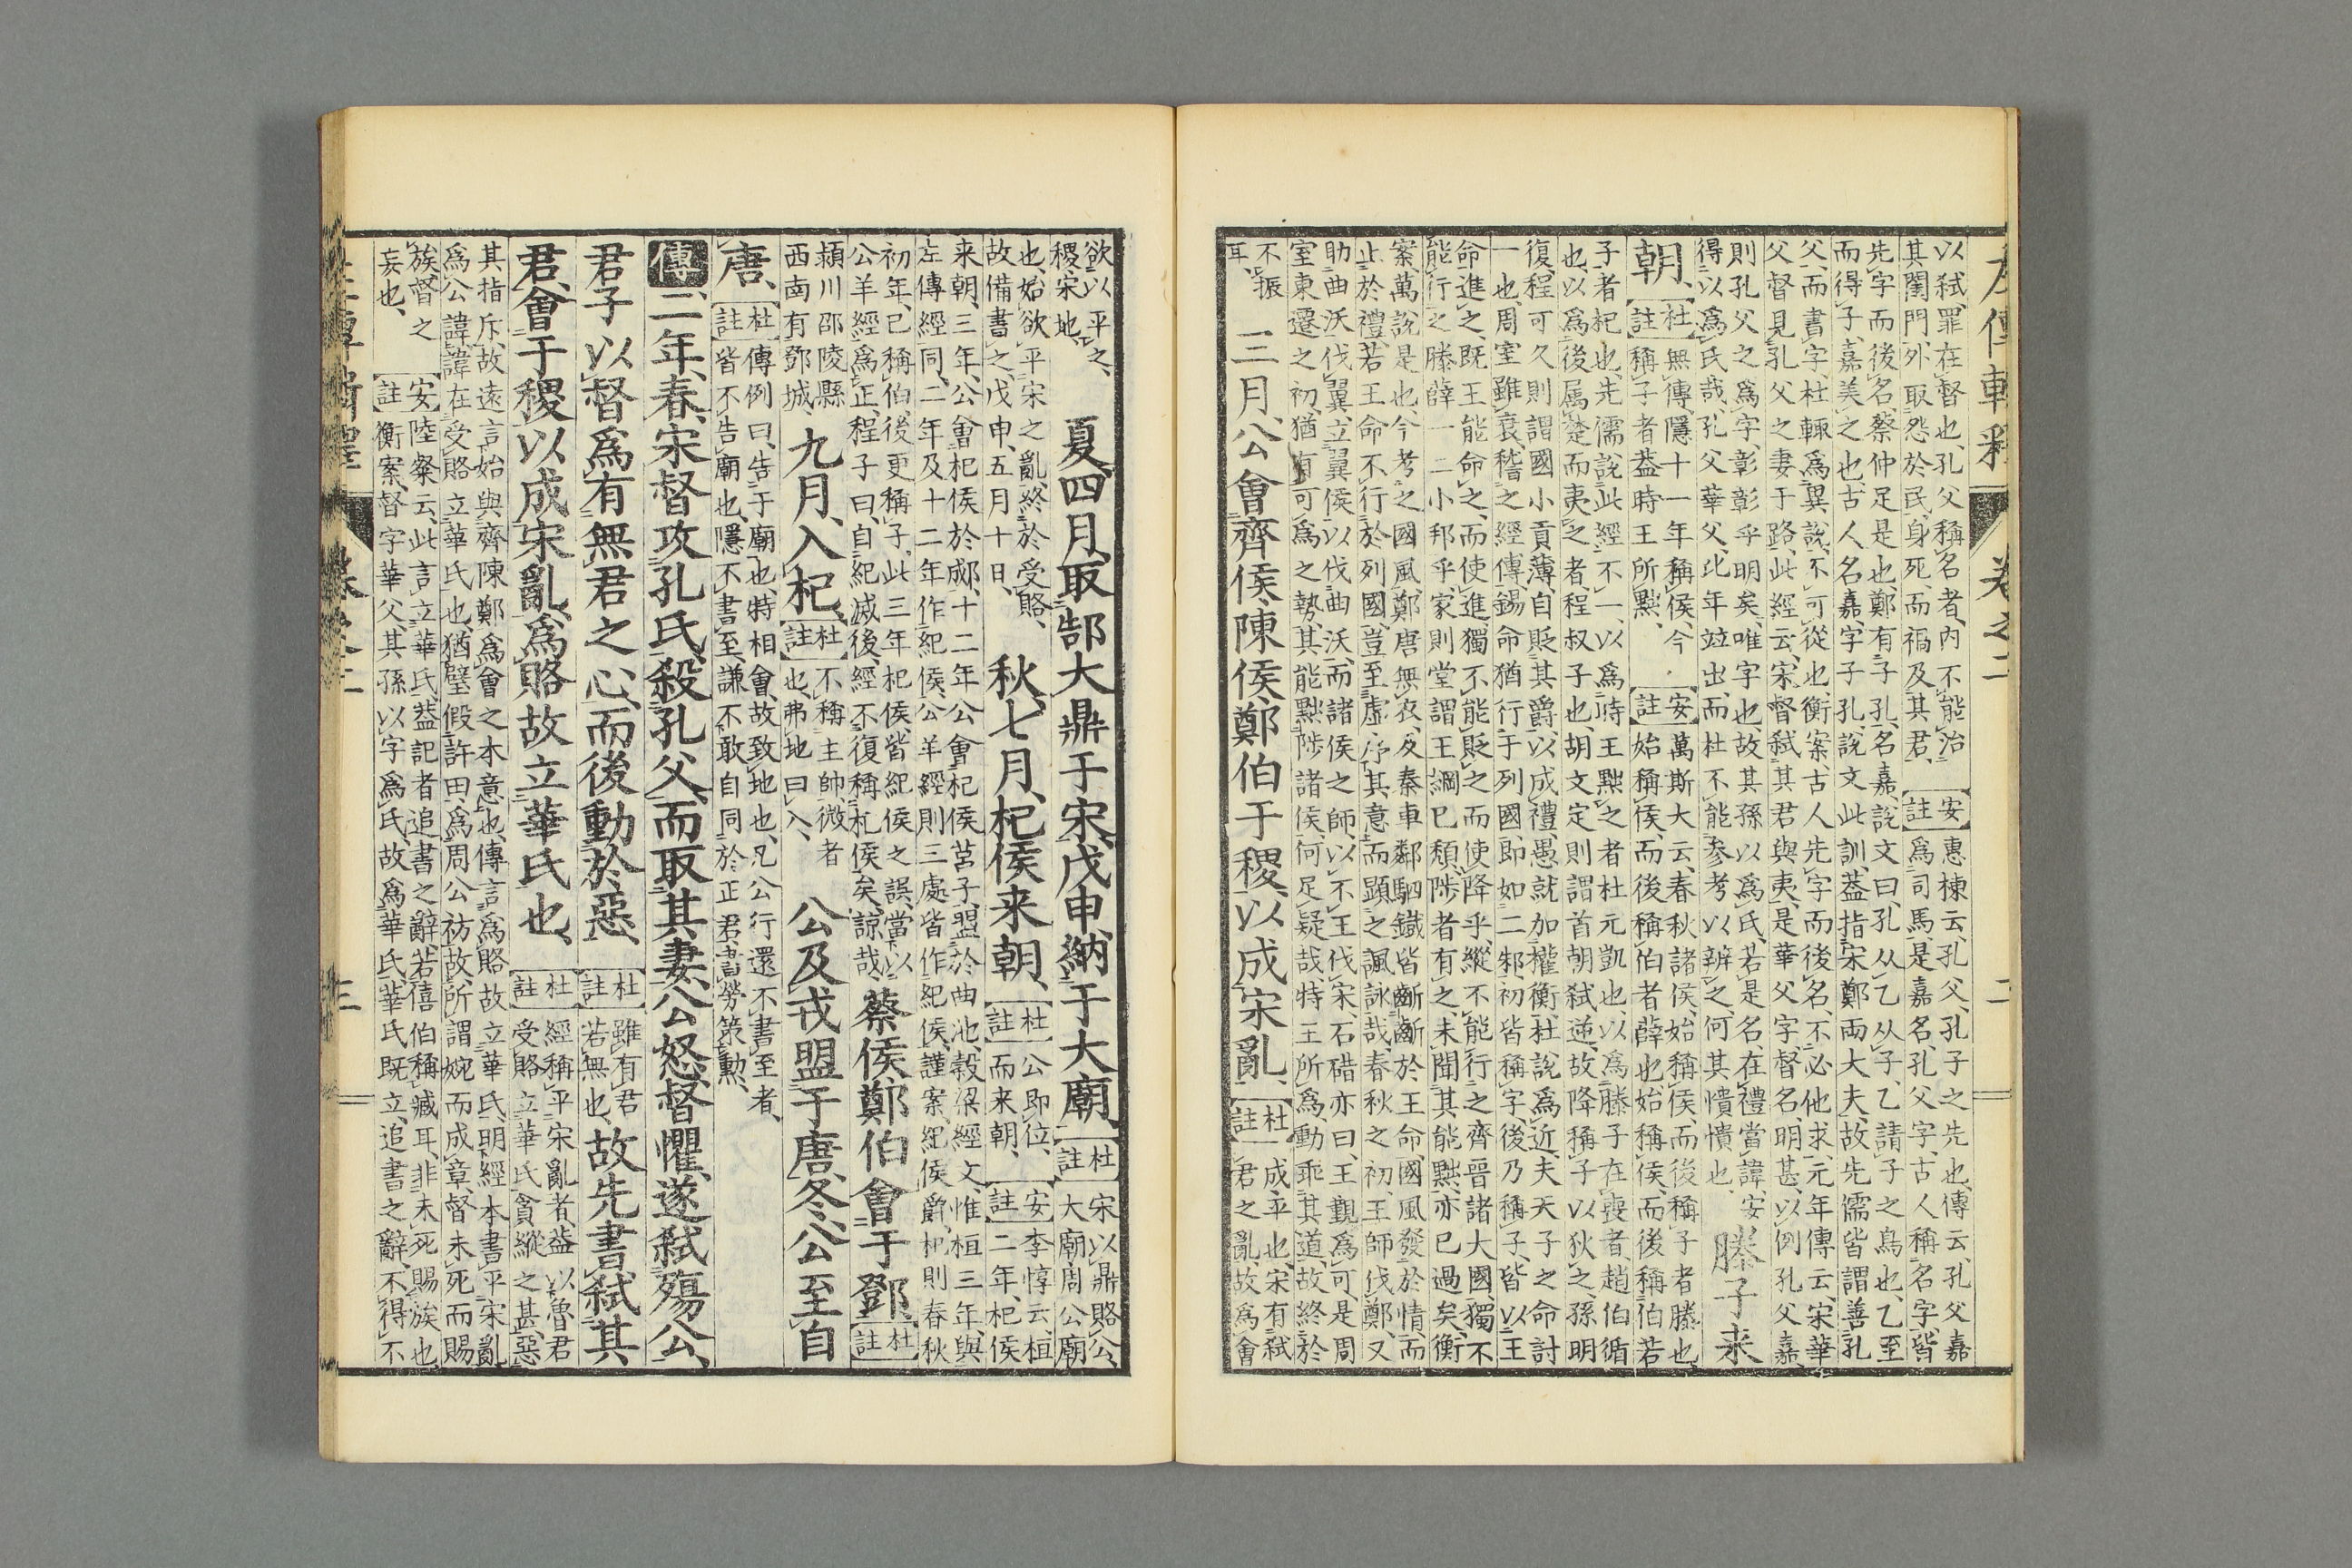 以弑罪在督也、孔父稱名者、內不能治
其閨門、外取怨於民、身死而禍及其君、
安註
惠棟云、孔父、孔子之先也、傳云孔父嘉
爲司馬、是嘉名、孔父字、古人稱名字、皆
先字而後名、蔡仲足是也、鄭有子孔、名嘉、說文曰、孔从乙从子、乙請子之鳥也、乙至
而得子、嘉美之也、古人名嘉、字子孔、說文此訓、蓋指宋鄭兩大夫、故先儒皆謂善孔
父、而書字、杜輒爲異說、不可從也、衡案、古人先字而後名、不必他求、元年傳云、宋華
父督見孔父之妻于路、此經云、宋督弑其君與夷、是華父字、督名明甚、以例孔父嘉、
則孔父之爲字、彰彰乎明矣、唯字也、故其孫以爲氏、若是名、在禮當諱、安
得以爲氏哉、孔父華父、比年竝出、而杜不能參考以辨之、何其憒憒也、
滕子来
朝、
杜註
無傳、隱十一年稱侯、今
稱子者、蓋時王所黜、
安註
萬斯大云、春秋諸侯、始稱侯、而後稱子者滕也、
始稱侯、而後稱伯者薛也、始稱侯、而後稱伯若
子者杞也、先儒說此經不一、以爲時王黜之者、杜元凱也、以爲滕子在喪者、趙伯循
也、以爲後属楚而夷之者、程叔子也、胡文定則謂首朝弑逆、故降稱子以狄之、孫明
復、程可久則謂國小貢薄、自貶其爵、以成禮、愚就加權衡、杜說爲近、夫天子之命討
一也、周室雖衰、稽之經傳、錫命猶行于列國、即如二邾、初皆稱字、後乃稱子、皆以王
命進之、既王能命之、而使進、獨不能貶之而使降乎、縱不能行之齊晋諸大國、獨不
能行之滕薛一二小邦乎、家則堂謂王綱已頽、陟者有之、未聞其能黜、亦已過矣、衡
案、萬說是也、今考之國風、鄭唐無衣、及秦車鄰駟鐵、皆斷斷於王命、國風發於情、而
止於禮、若王命不行於列國、豈至虛序其意、而顕之諷詠哉、春秋之初、王師伐鄭、又
助曲沃伐翼、立翼侯以伐曲沃、而諸侯之師、以不王伐宋、石碏亦曰、王覲爲可、是周
室東遷之初、猶有可爲之勢、其能黜陟諸侯、何足疑哉、特王所爲、動乖其道、故終於
不振
耳、
三月、公會齊侯、陳侯、鄭伯于稷、以成宋亂、
杜註
成、平也、宋有弑
君之亂、故爲會
欲以平之、
稷、宋地、
夏、四月、取郜大鼎于宋、戊申、納于大廟、
杜註
宋以鼎賂公、
大廟、周公廟
也、始欲平宋之亂、終於受賂、
故備書之、戊申、五月十日、
秋、七月、杞侯来朝、
杜註
公即位、
而来朝、
安註
李惇云、桓
二年、杞侯
来朝、三年、公會杞侯於郕、十二年、公會杞侯莒子、盟於曲池、穀梁經文、惟桓三年、與
左傳經同、二年及十二年作紀侯、公羊經則三處皆作紀侯、謹案、紀侯爵、杞則春秋
初年、已稱伯、後更稱子、此三年杞侯、皆紀侯之誤、當以
公羊經爲正、程子曰、自紀滅後、經不復稱杞侯矣、諒哉、
蔡侯鄭伯會于鄧、
杜註
潁川邵陵縣
西南有鄧城、
九月、入杞、
杜註
不稱主帥、微者
也、弗地曰入、
公及戎盟于唐、冬、公至自
唐、
杜註
傳例曰、告于廟也、特相會、故致地也、凡公行還不書至者、
皆不告廟也、隱不書至、謙不敢自同於正君、書勞策勲、
傳二年、春、宋督攻孔氏、殺孔父、而取其妻、公怒、督懼、遂弑殤公、
君子以督爲有無君之心、而後動於惡、
杜註
雖有君
若無也、
故先書弑其
君、會于稷、以成宋亂、爲賂故、立華氏也、
杜註
經稱平宋亂者、蓋以魯君
受賂立華氏、貪縱之甚、惡
其指斥、故遠言始與齊陳鄭爲會之本意也、傳言爲賂故立華氏、明經本書平宋亂、
爲公諱、諱在受賂立華氏也、猶璧假許田、爲周公祊故、所謂婉而成章、督未死而賜
族、督之
妄也、
安註
陸粲云、此言立華氏、蓋記者追書之辭、若僖伯稱臧耳、非未死賜族也、
衡案、督字華父、其孫以字爲氏、故爲華氏、華氏既立、追書之辭、不得不